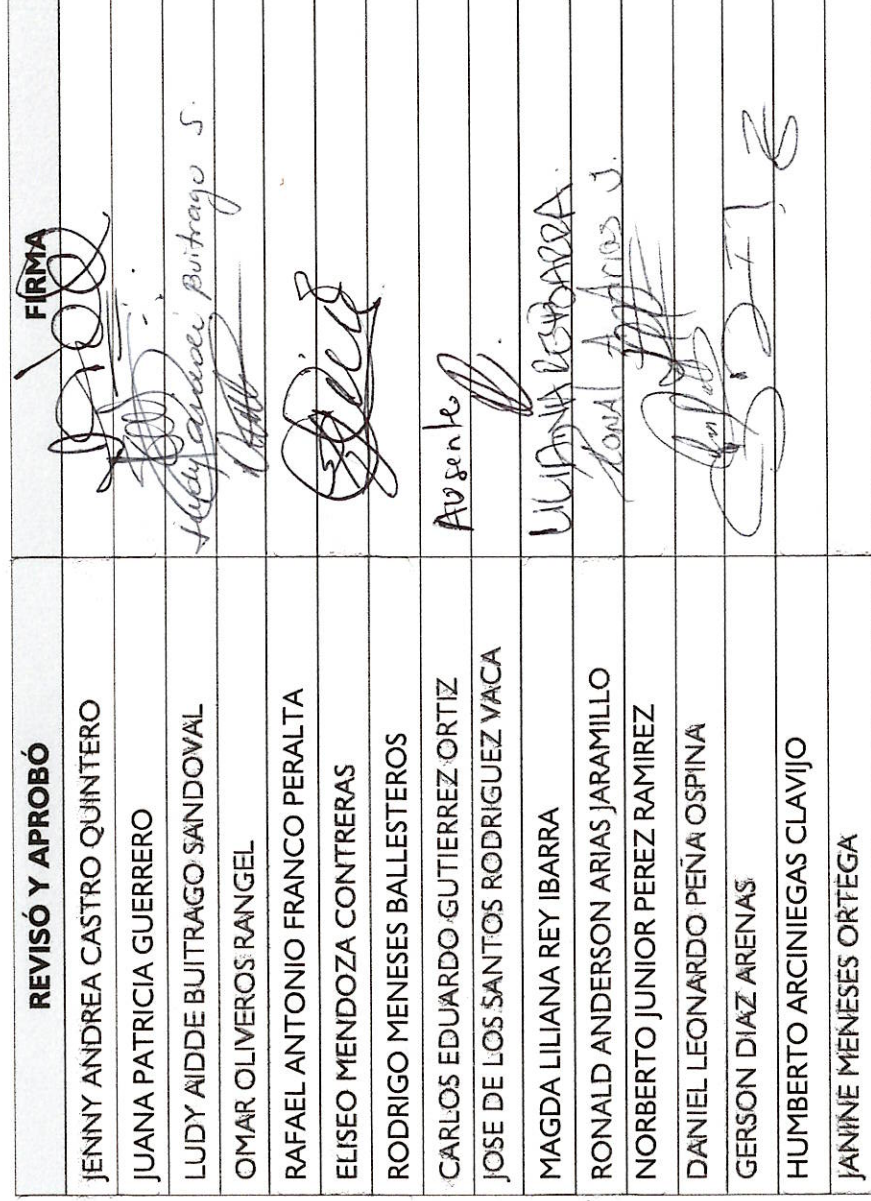 REVISÓ Y APROBÓ FIRMA
JENNY ANDREA CASTRO QUINTERO
JUANA PATRICIA GUERRERO
LUDY AIDDE BUITRAGO SANDOVAL Buitrago S.
OMAR OLIVEROS RANGEL
RAFAEL ANTONIO FRANCO PERALTA
ELISEO MENDOZA CONTRERAS
RODRIGO MENESES BALLESTEROS
CARLOS EDUARDO GUTIERREZ ORTIZ Ausente
JOSE DE LOS SANTOS RODRIGUEZ VACA
MAGDA LILIANA REY IBARRA LILIANA REY IBARRA.
RONALD ANDERSON ARIAS JARAMILLO Arias J.
NORBERTO JUNIOR PEREZ RAMIREZ
DANIEL LEONARDO PEÑA OSPINA
GERSON DIAZ ARENAS
HUMBERTO ARCINIEGAS CLAVIJO
JANINE MENESES ORTEGA